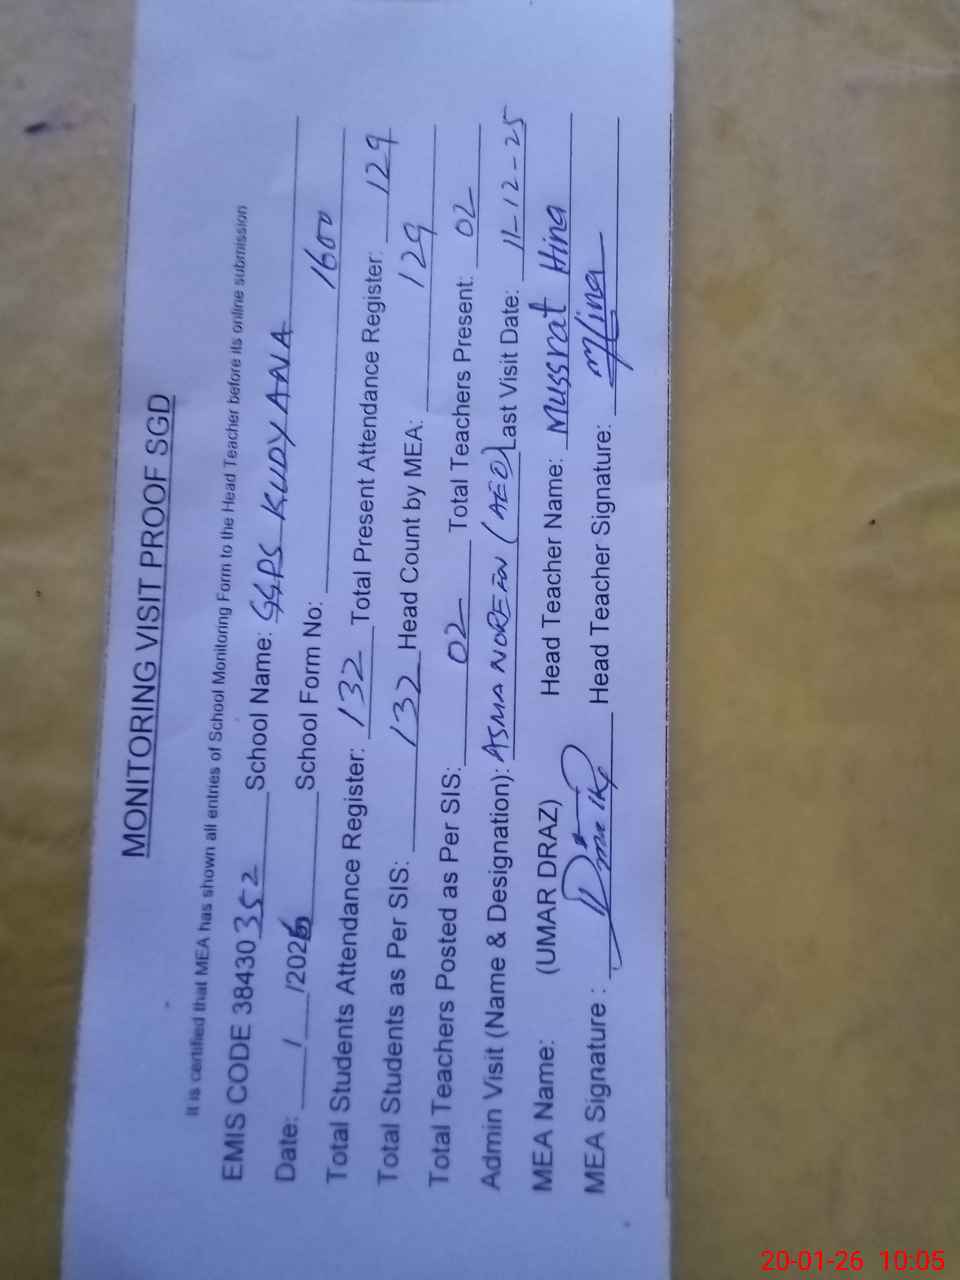 MONITORING VISIT PROOF SGD
It is certified that MEA has shown all entries of School Monitoring Form to the Head Teacher before its online submission
EMIS CODE 38430352 School Name: GGPS KUDYANA
Date: ___/___/2026 School Form No: 1600
Total Students Attendance Register: 132 Total Present Attendance Register: 129
Total Students as Per SIS: 132 Head Count by MEA: 129
Total Teachers Posted as Per SIS: 02 Total Teachers Present: 02
Admin Visit (Name & Designation): ASMA NOREEN (AEO) Last Visit Date: 11-12-25
MEA Name: (UMAR DRAZ) Head Teacher Name: Mussrat Hina
MEA Signature : Head Teacher Signature: MHina
20-01-26 10:05